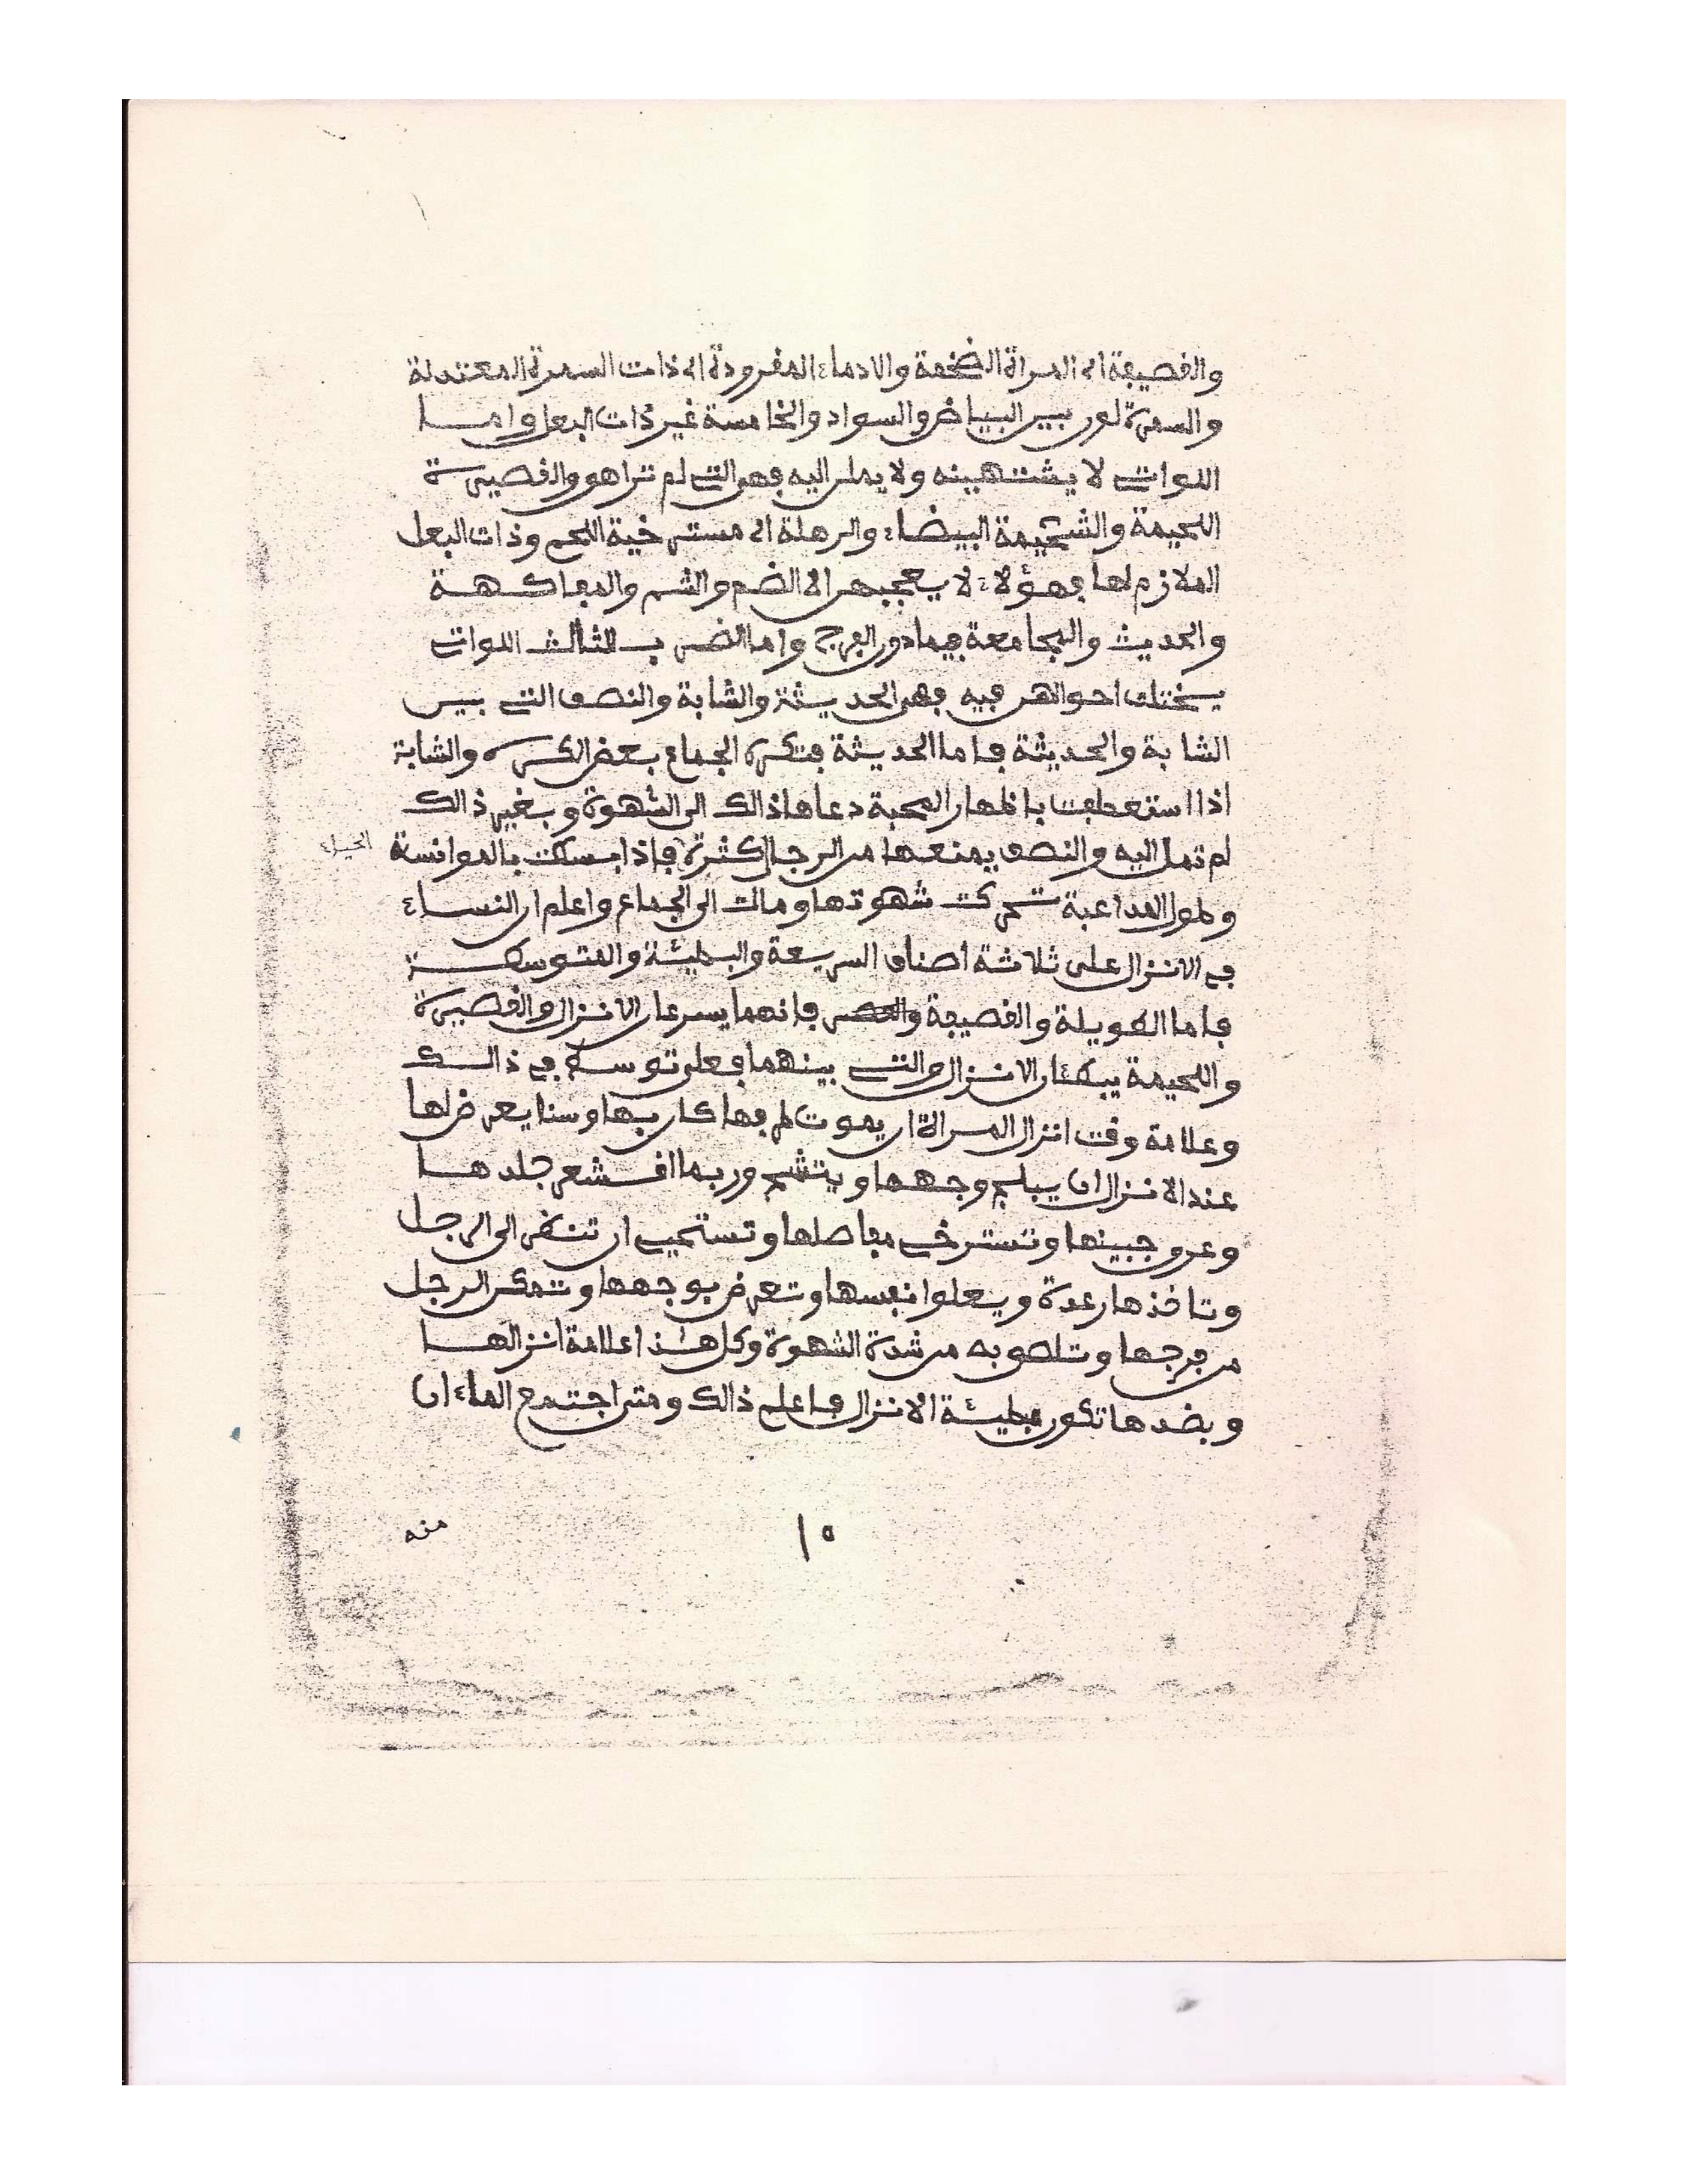 والقصيفة اى المرأة الضخمة والادماء المفرودة اى ذات السمرة المعتدلة
والسمرة لون بين البياض والسواد والخامسة غير ذات البعل واما
اللواتى لا يشتهينه ولا يملن اليه فهن التى لم تراهق والقصيرة
اللحيمة والشحيمة البيضاء والرهلة اى مسترخية اللحم وذات البعل
الملازم لها فهؤلاء لا يعجبهن الا الضم والشم والمفاكهة
والحديث والمجامعة فيما دون الفرج واما الضرب الثالث اللواتى
يختلف احوالهن فيه فهن الحديثة والشابة والنصف التى بين
الشابة والحديثة فاما الحديثة فتكره الجماع بعض الكره والشابة
اذا استعطفت باظهار المحبة دعاها ذالك الى الشهوة وبغير ذالك
لم تمل اليه والنصف يمنعها من الرجال كثرة فاذا بسطت بالموانسة
الحياء
وطول المداعبة تحركت شهوتها ومالت الى الجماع واعلم ان النساء
فى الانزال على ثلاثة اصناف السريعة والبطيئة والمتوسطة
فاما الطويلة والقصيفة فانهما يسرعان الانزال والقصيرة
واللحيمة يبطئان الانزال والتى بينهما فعلى توسط فى ذالك
وعلامة وقت انزال المراة ان يموت طرفها كان بها وسنا يعرض لها
عند الانزال ان يبلج وجهها ويتشم وربما اقشعر جلدها
وعرق جبينها وتسترخى مفاصلها وتستحيى ان تنظر الى الرجل
وتاخذها رعدة ويعلوا نفسها وتعرض بوجهها وتمكن الرجل
من فرجها وتلصق به من شدة الشهوة وكل هذا علامة انزالها
وبضدها تكون بطيئة الانزال فاعلم ذالك ومتى اجتمع الماءان
منه
١٥